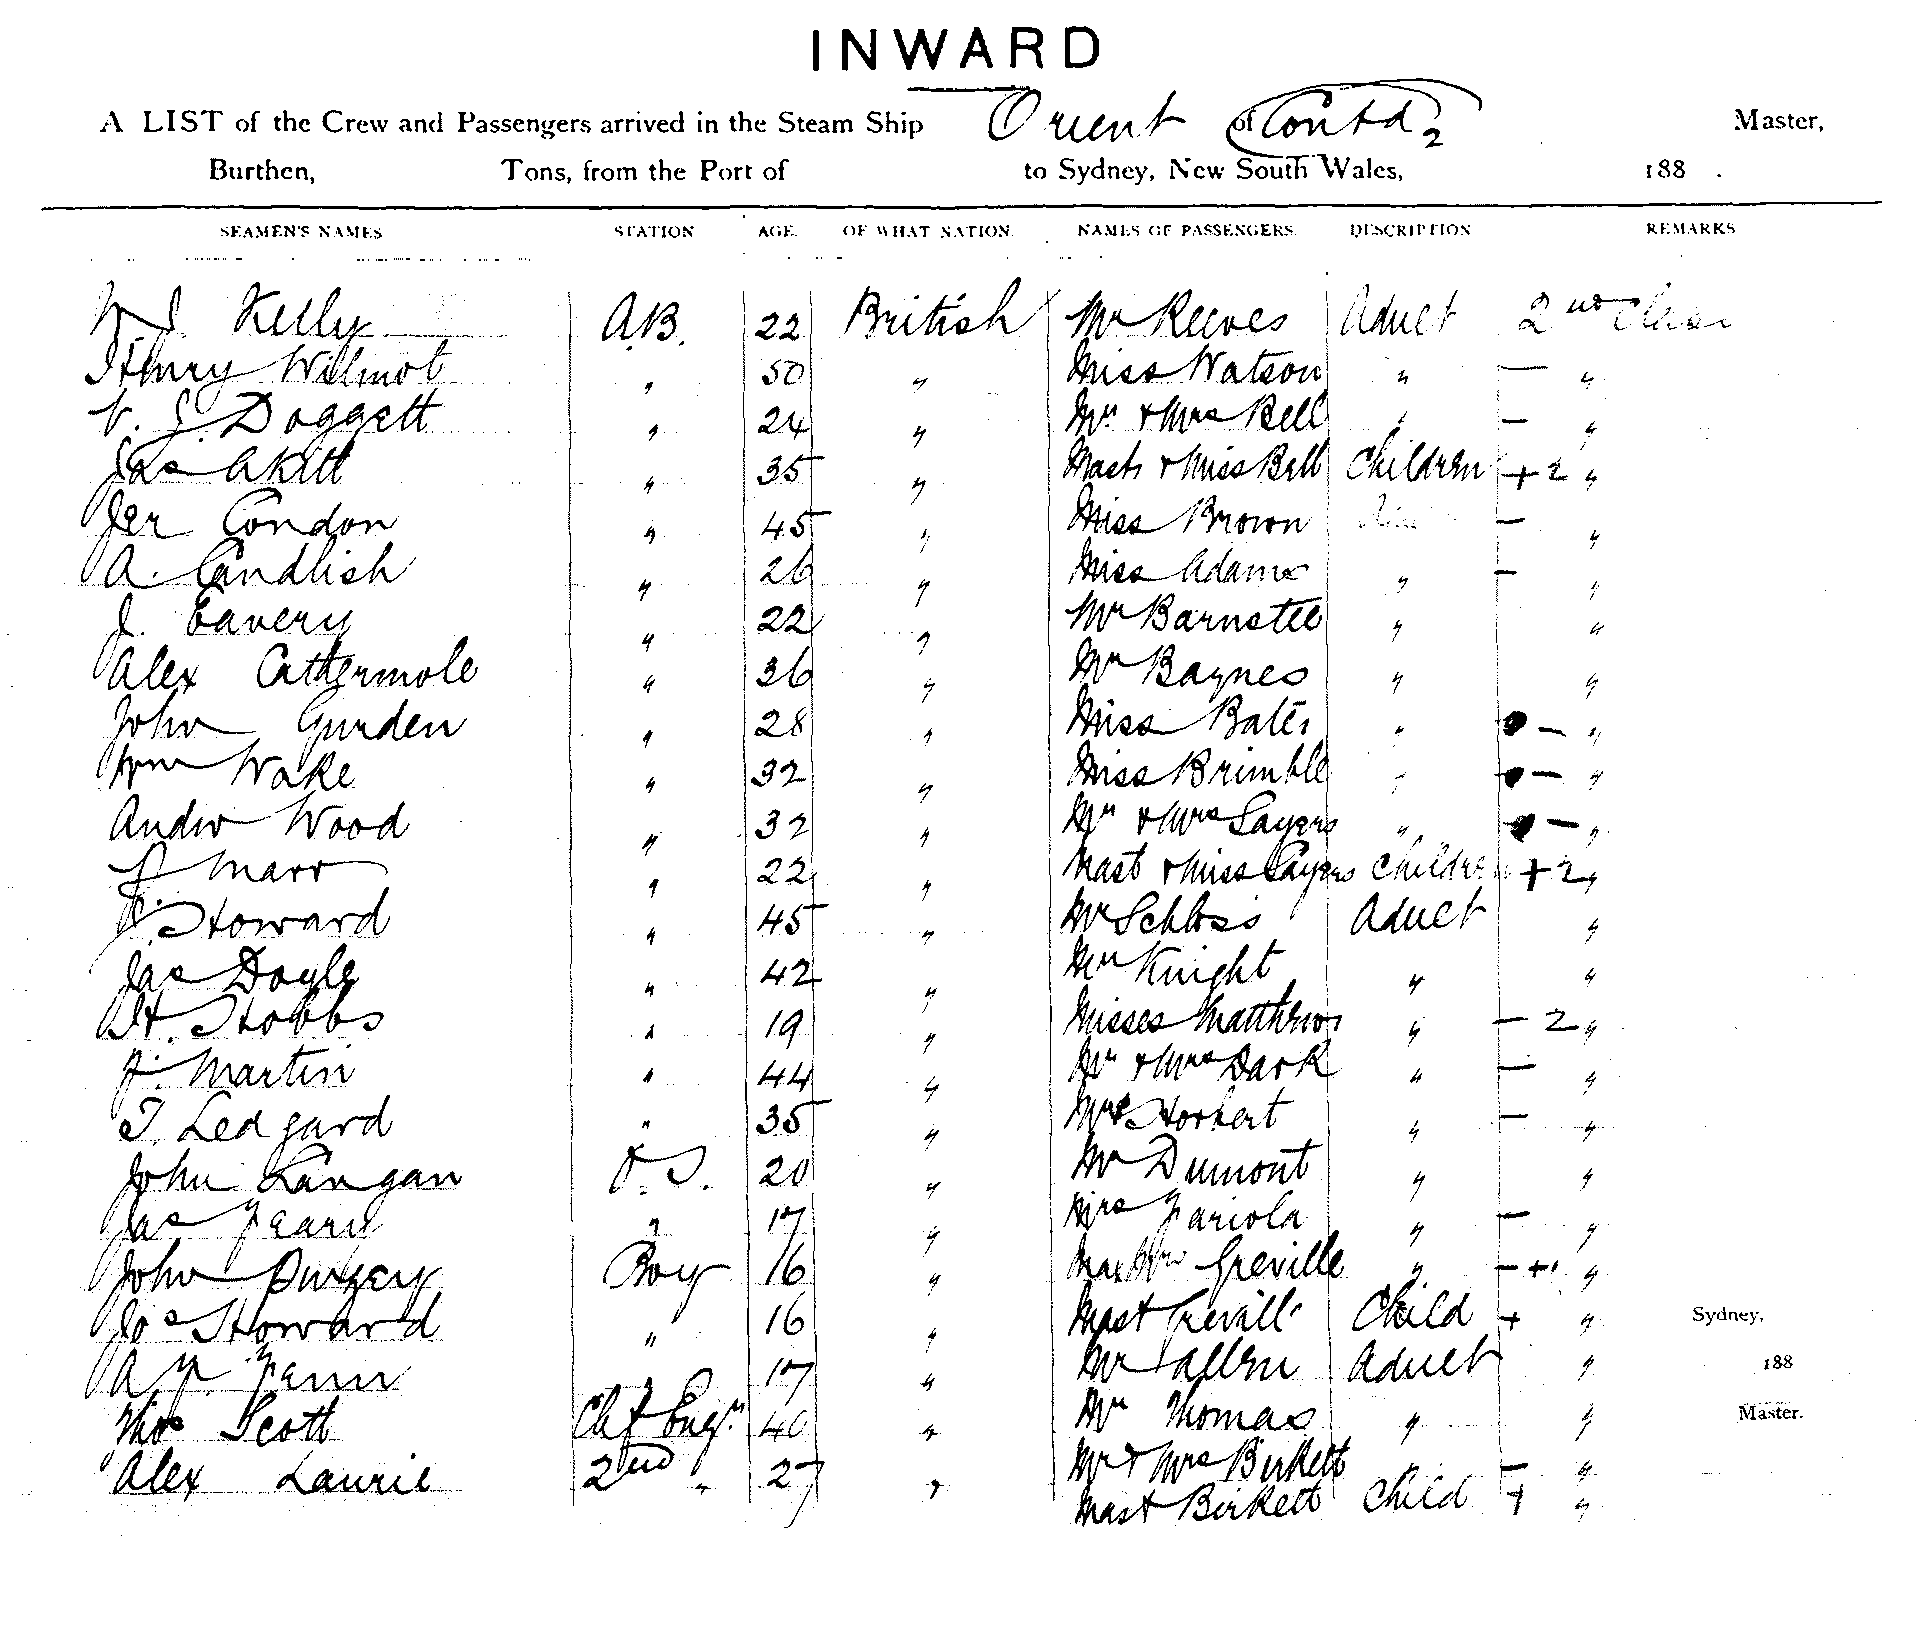 INWARD
A LIST of the Crew and Passengers arrived in the Steam Ship Orient of Contd 2 Master,
Burthen, Tons, from the Port of to Sydney, New South Wales, 188 .
SEAMEN'S NAMES STATION AGE. OF WHAT NATION. NAMES OF PASSENGERS. DESCRIPTION REMARKS
Kelly A.B. 22 British Mr Reeves Aduct 2nd Class
Henry Wilmot " 50 " Miss Watson " — "
V. S. Doggett " 24 " Mr & Mrs Bell " — "
Jas Akitt " 35 " Mast & Miss Bell Children + 2 "
Jer Condon " 45 " Miss Brown — "
A. Candlish " 26 " Miss Adams " — "
J. Eavery " 22 " Mr Barnstee " "
Alex Cattermole " 36 " Mr Baynes " "
John Gurden " 28 " Miss Bates " — "
Wm Wake " 32 " Miss Brimble " — "
Andw Wood " 32 " Mr & Mrs Sayers " — "
J. Marr " 22 " Mast & Miss Sayers Children + 2 "
J. Howard " 45 " Mr Schloss Aduct "
Jas Doyle " 42 " Mr Knight " "
H. Hobbs " 19 " Misses Matthews " — 2 "
J. Martin " 44 " Mr & Mrs Dark " — "
T. Ledgard " 35 " Mrs Horbert " — "
John Langan O.S. 20 " Mr Dumont " "
Jas Feary " 17 " Mrs Fariola " — "
John Boy 16 " Greville " — + "
Jos Howard " 16 " Mast Grevill Child + " Sydney,
A. Fenn " 17 " Mr Allen Aduct " 188
Thos Scott Chf Engr 40 " Mr Thomas " " Master.
Alex Laurie 2nd " 27 " Mr & Mrs Birkett " — "
Mast Birkett Child + "